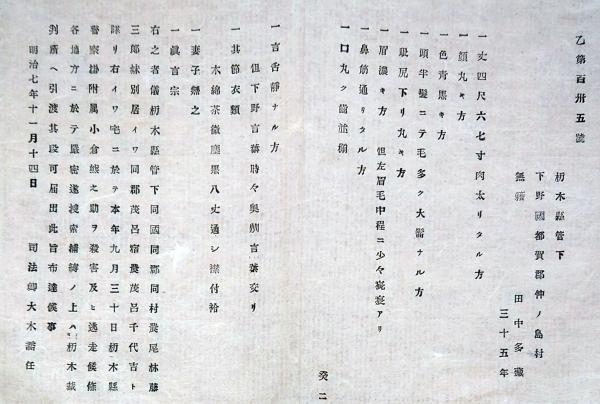 乙第百卅五號
杤木縣管下
下野國都賀郡仲ノ島村
無籍
田中多藏
三十五年
一丈四尺六七寸肉太リタル方
一顔丸キ方
一色青黒キ方
一頭半髪ニテ毛多ク大ナル方
一眼尻下リ丸キ方
一眉濃キ方 但左眉毛中程ニ少々疵痕アリ
一鼻筋通リタル方
一口丸ク齒並揃
癸二
一言舌靜ナル方
但下野言葉時々奥羽言葉交リ
一其節衣類
木綿茶微塵黒八丈通シ襟付袷
一妻子無之
一眞言宗
右之者儀杤木縣管下同國同郡同村農尾林藤
三郎妹別居イワ同郡茂呂宿農茂呂千代吉ト
謀リ右イワ宅ニ於テ本年九月三十日杤木縣
警察掛附属小倉熊之助ヲ殺害及ヒ逃走候條
各地方ニ於テ嚴密遂捜索捕縛ノ上ハ杤木裁
判所ヘ引渡其段可届出此旨布達候事
明治七年十一月十四日 司法卿大木喬任